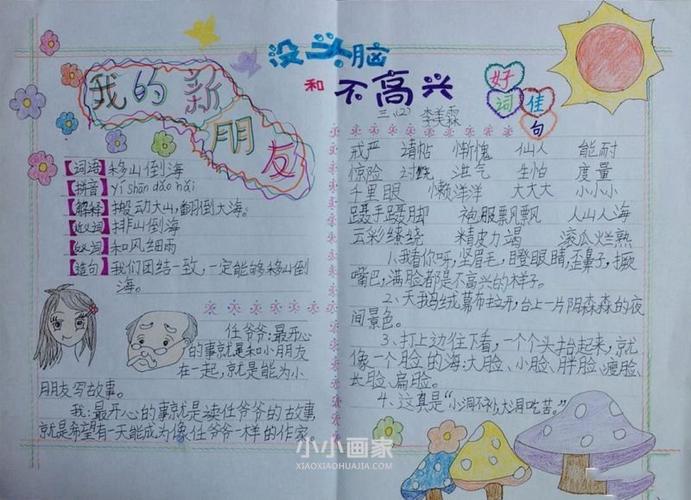 没头脑
和 不高兴
我的新朋友
好词佳句
三（2）
【词语】移山倒海
【拼音】yí shān dǎo hǎi
【解释】搬动大山，翻倒大海。
【近义词】排山倒海
【反义词】和风细雨
【造句】我们团结一致，一定能够移山倒
海。
任爷爷：最开心
的事就是和小朋友
在一起，就是能为小
朋友写故事。
我：最开心的事就是读任爷爷的故事，
就是希望有一天能成为像任爷爷一样的作家
戒严 请帖 惭愧 仙人 能耐
惊险 讨饶 泄气 生怕 度量
千里眼 懒洋洋 大大大 小小小
蹑手蹑脚 袍服飘飘 人山人海
云彩缭绕 精皮力竭 滚瓜烂熟
1、我看你呀，竖眉毛，瞪眼睛，歪鼻子，撅
嘴巴，满脸都是不高兴的样子。
2、天鹅绒幕布拉开，台上一片阴森森的夜
间景色。
3、打上边往下看，一个个头抬起来，就
像一个脸的海：大脸、小脸、胖脸、瘦脸、
长脸、扁脸。
4、这真是“小洞不补，大洞吃苦。”
小小画家
XIAOXIAOHUAJIA.COM